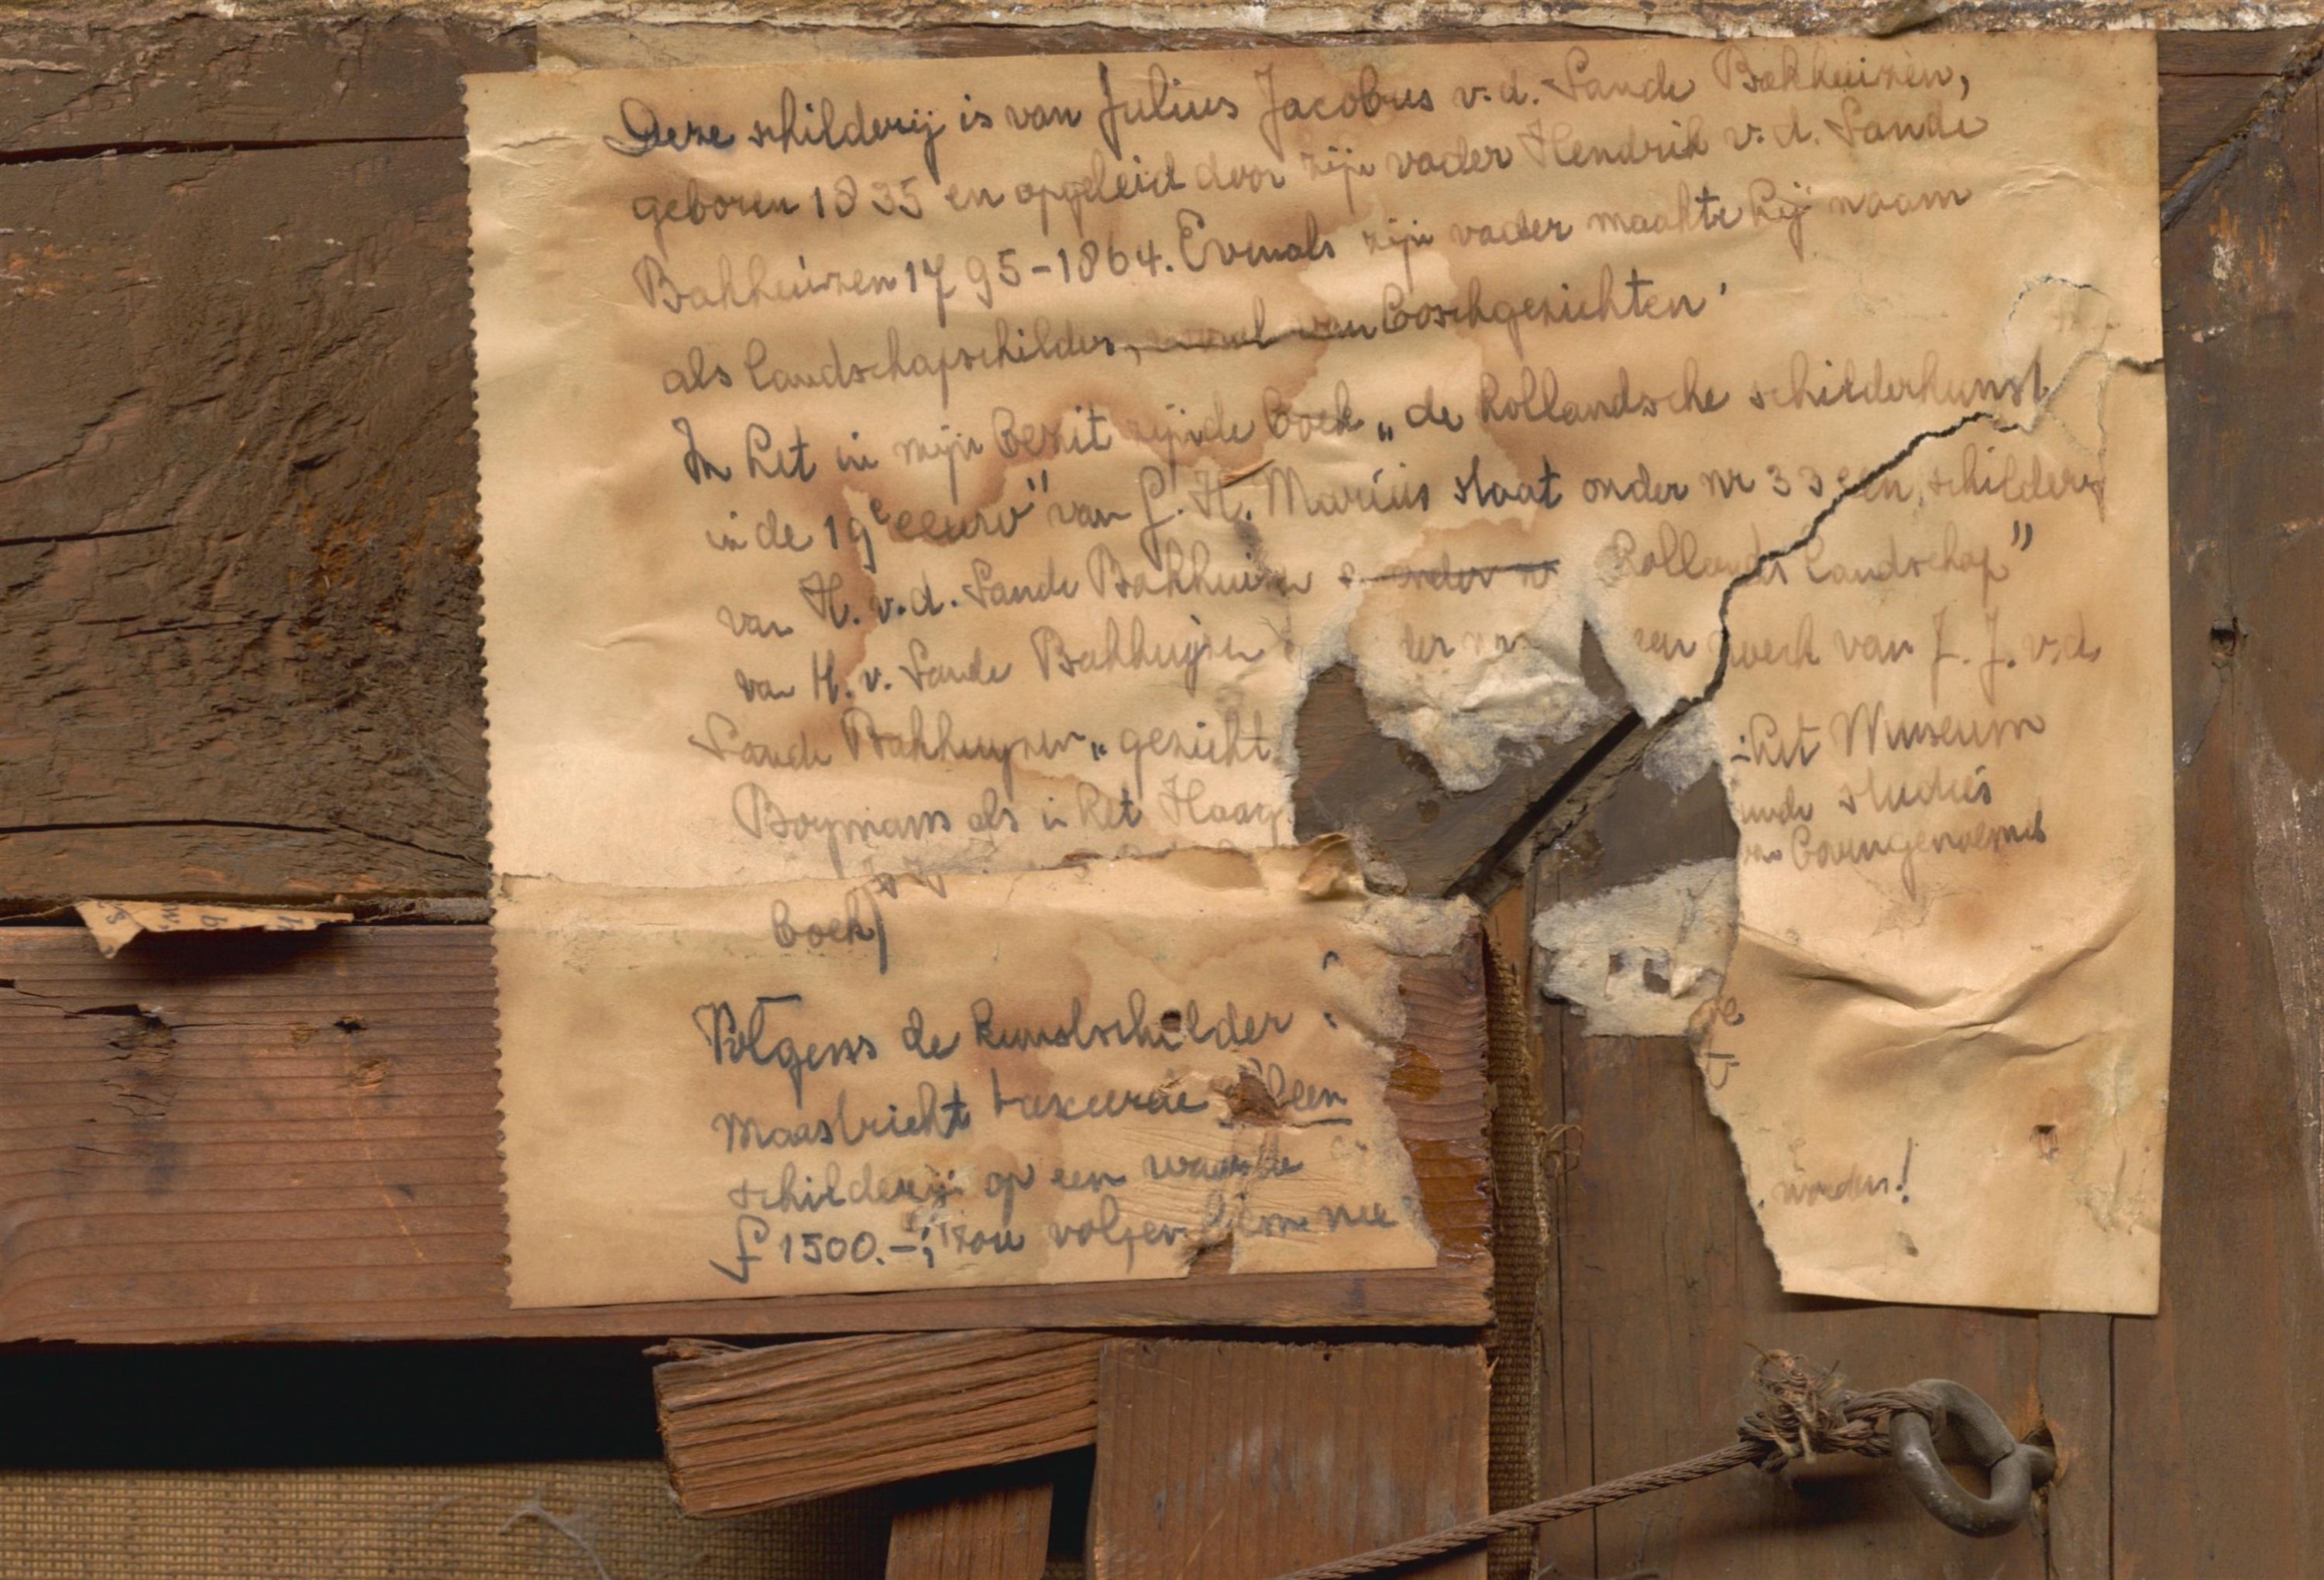 Deze schilderij is van Julius Jacobus v.d. Sande Bakhuizen,
geboren 1835 en opgeleid door zijn vader Hendrik v.d. Sande
Bakhuizen 1795-1864. Evenals zijn vader maakte hij naam
als landschapschilder, vooral van boschgezichten.
In het in mijn bezit zijnde boek „de hollandsche schilderkunst
in de 19e eeuw" van G. H. Marius staat onder nr 33 een schilderij
van H. v.d. Sande Bakhuizen onder hollands landschap"
van H. v. Sande Bakhuyzen een werk van J. J. v.d.
Sande Bakhuyzen „gezicht het Museum
Boymans als in het Haag studies
bovengenoemd
boek)
Volgens de kunstschilder
Maastricht taxeerde
schilderij op een waarde
f 1500.-; zou volgens hem worden!